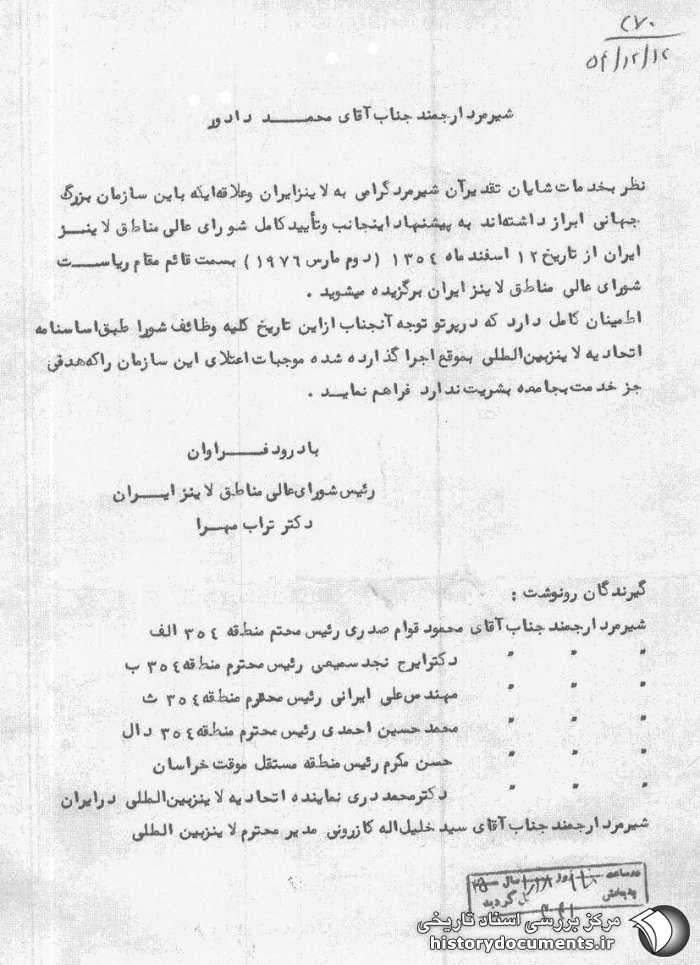 ۲۷۰
۵۴/۱۲/۱۲
شیرمرد ارجمند جناب آقای محمد دادور
نظر بخدمات شایان تقدیر آن شیرمرد گرامی به لاینز ایران و علاقه‌ایکه باین سازمان بزرگ
جهانی ابراز داشته‌اند به پیشنهاد اینجانب و تأیید کامل شورای عالی مناطق لاینز
ایران از تاریخ ۱۲ اسفند ماه ۱۳۵۴ (دوم مارس ۱۹۷۶) بسمت قائم مقام ریاست
شورای عالی مناطق لاینز ایران برگزیده میشوید .
اطمینان کامل دارد که در پرتو توجه آنجناب از این تاریخ کلیه وظائف شورا طبق اساسنامه
اتحادیه لاینز بین‌المللی بموقع اجرا گذارده شده موجبات اعتلای این سازمان را که هدفی
جز خدمت بجامعه بشریت ندارد فراهم نمایید .
با درود فراوان
رئیس شورای عالی مناطق لاینز ایران
دکتر تراب مهرا
گیرندگان رونوشت :
شیرمرد ارجمند جناب آقای محمود قوام صدری رئیس محتم منطقه ۳۵۴ الف
" " " دکتر ایرج نجد سمیعی رئیس محترم منطقه ۳۵۴ ب
" " " مهندس علی ایرانی رئیس محترم منطقه ۳۵۴ ث
" " " محمد حسین احمدی رئیس محترم منطقه ۳۵۴ دال
" " " حسن مکرم رئیس منطقه مستقل موقت خراسان
" " " دکتر محمد دری نماینده اتحادیه لاینز بین‌المللی در ایران
شیرمرد ارجمند جناب آقای سید خلیل‌اله کازرونی مدیر محترم لاینز بین المللی
در ساعت روز سال
پخش گردید
مرکز بررسی اسناد تاریخی
historydocuments.ir